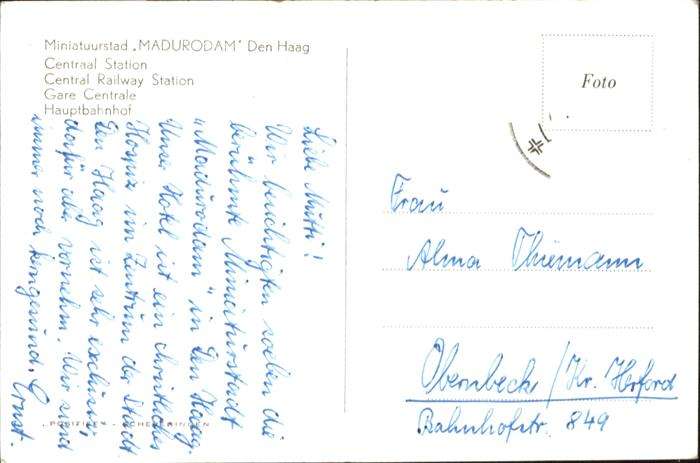 Miniatuurstad „MADURODAM" Den Haag
Centraal Station
Central Railway Station
Gare Centrale
Hauptbahnhof
Liebe Mutti!
Wir besichtigten soeben die
berühmte Miniaturstadt
„Madurodam" in Den Haag.
Unser Hotel ist ein christliches
Hospiz im Zentrum der Stadt
Den Haag ist sehr
dafür aber vornehm. Wir sind
immer noch kerngesund. Ernst.
Foto
Frau
Alma Thiemann
Obernbeck / Kr. Herford
Bahnhofstr. 849